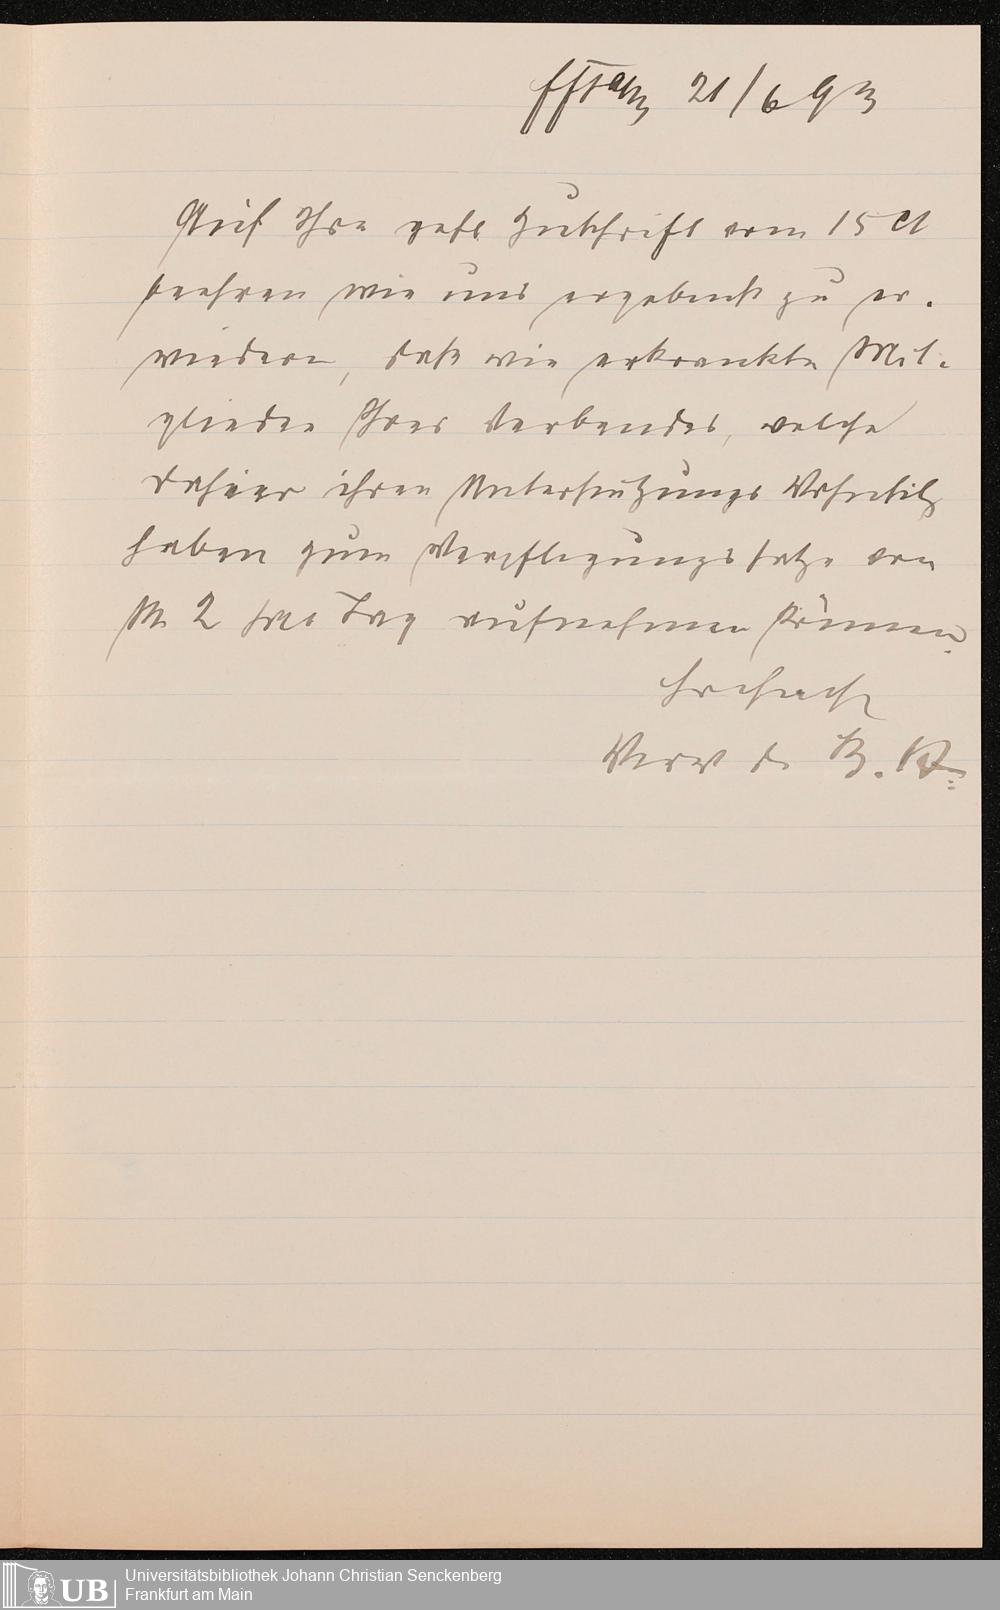 Ffm 21/6 93
Auf Ihre gefl. Zuschrift vom 15 ct
beehren wir uns ergebenst zu er-
wiedern, daß wir erkrankte Mit-
glieder Ihres Verbandes, welche
dahier ihren Unterstützungs Wohnsitz
haben zum Verpflegungssatze von
M 2 pro Tag aufnehmen können.
Hochach
Verw d.
Universitätsbibliothek Johann Christian Senckenberg
Frankfurt am Main
UB